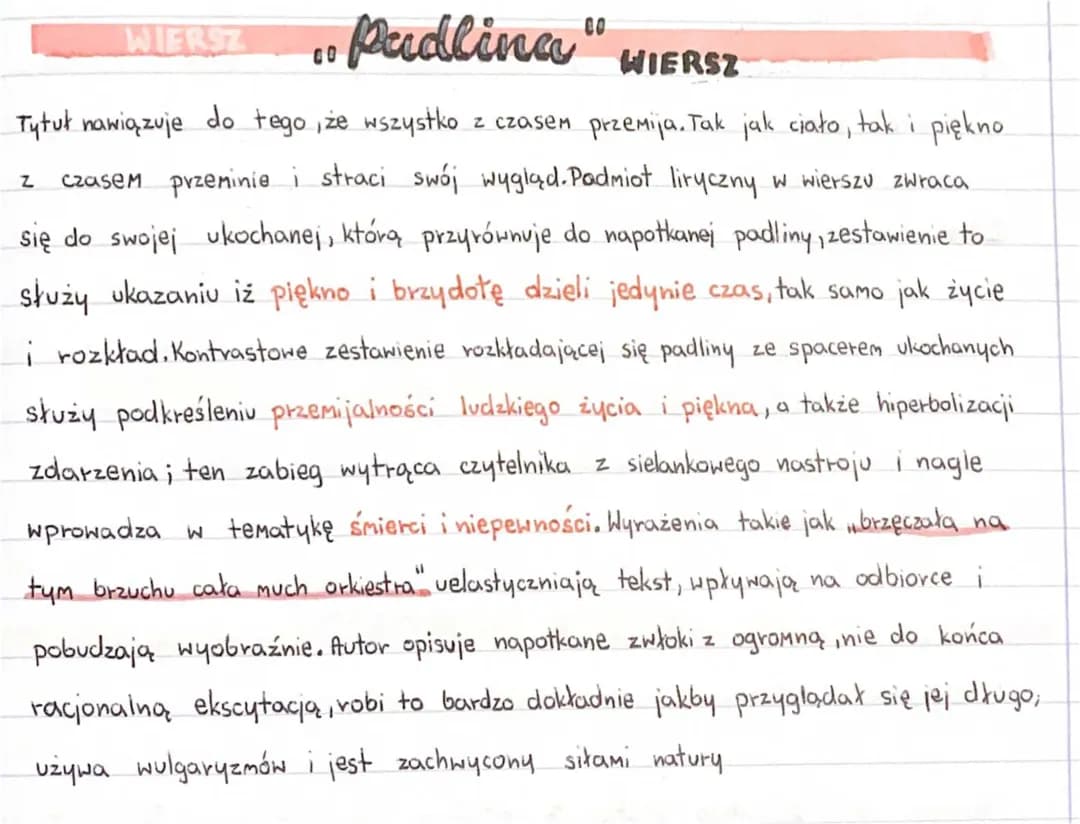 WIERSZ „Padlina" WIERSZ
Tytuł nawiązuje do tego, że wszystko z czasem przemija. Tak jak ciało, tak i piękno
z czasem przeminie i straci swój wygląd. Podmiot liryczny w wierszu zwraca
się do swojej ukochanej, którą przyrównuje do napotkanej padliny, zestawienie to
służy ukazaniu iż piękno i brzydotę dzieli jedynie czas, tak samo jak życie
i rozkład. Kontrastowe zestawienie rozkładającej się padliny ze spacerem ukochanych
służy podkreśleniu przemijalności ludzkiego życia i piękna, a także hiperbolizacji
zdarzenia; ten zabieg wytrąca czytelnika z sielankowego nastroju i nagle
wprowadza w tematykę śmierci i niepewności. Wyrażenia takie jak „brzęczała na
tym brzuchu cała much orkiestra" uelastyczniają tekst, wpływają na odbiorce i
pobudzają wyobraźnie. Autor opisuje napotkane zwłoki z ogromną, nie do końca
racjonalną ekscytacją, robi to bardzo dokładnie jakby przyglądał się jej długo;
używa wulgaryzmów i jest zachwycony siłami natury